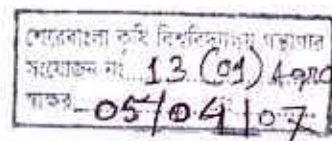 শেরেবাংলা কৃষি বিশ্ববিদ্যালয় গন্থাগার
সংযোজন নং... 13 (01) Agro
স্বাক্ষর 05/04/07